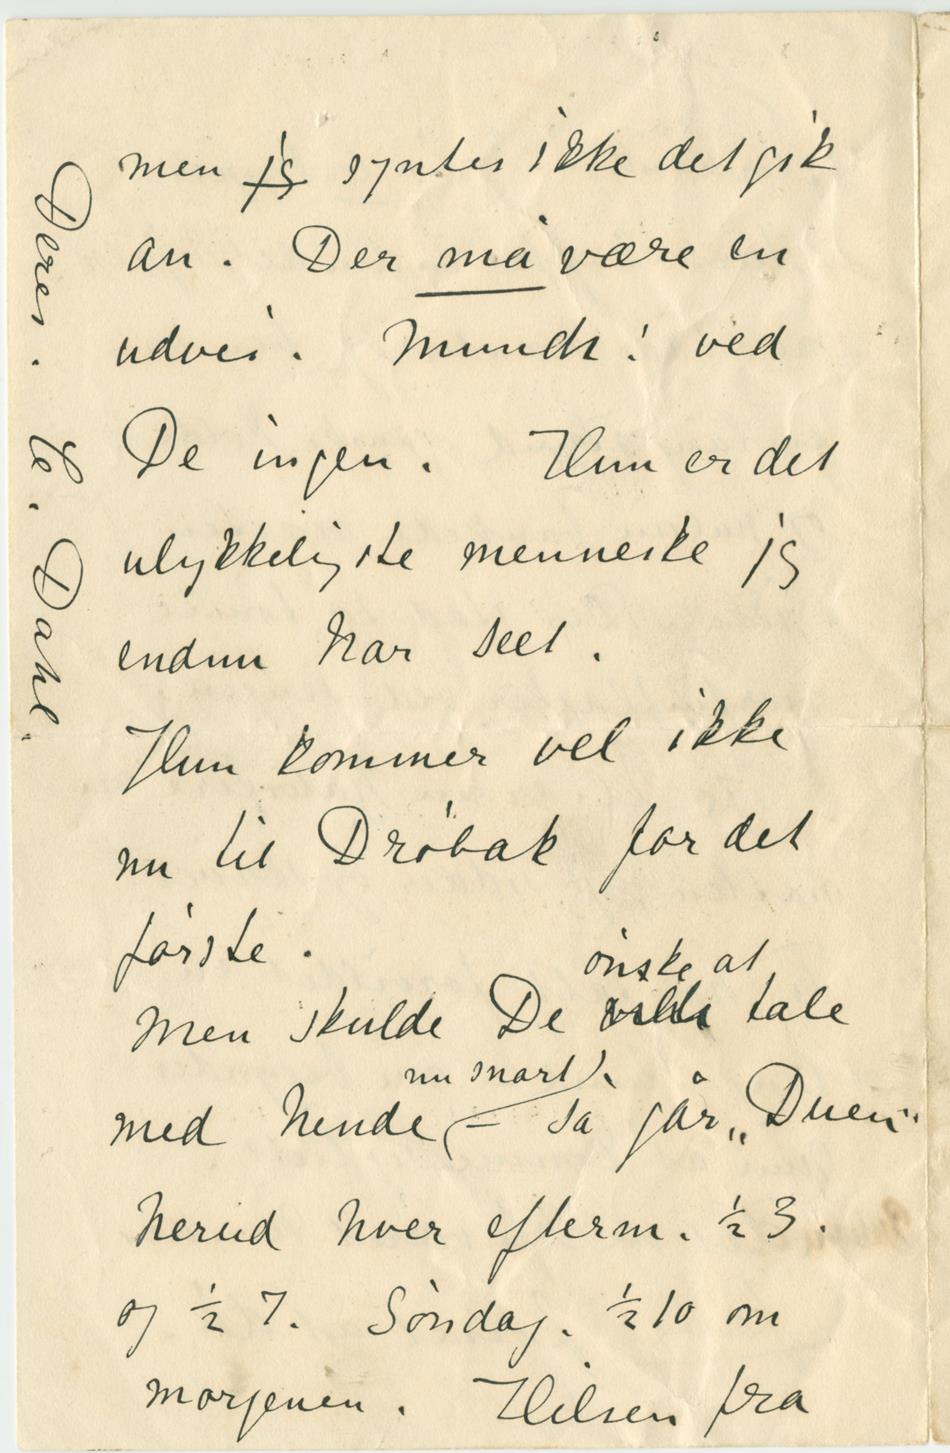 men jg syntes ikke det gik
an. Der må være en
udvei. Munch! ved
De ingen. Hun er det
ulykkeligste menneske jg
endnu har seet.
Hun kommer vel ikke
nu til Drøbak for det
første.
ønske at
Men skulde De vilde tale
nu snart).
med hende (– så går „Duen“
herud hver efterm. ½ 3.
og ½ 7. Søndag. ½ 10 om
morgenen. Hilsen fra
Deres. C. Dahl.